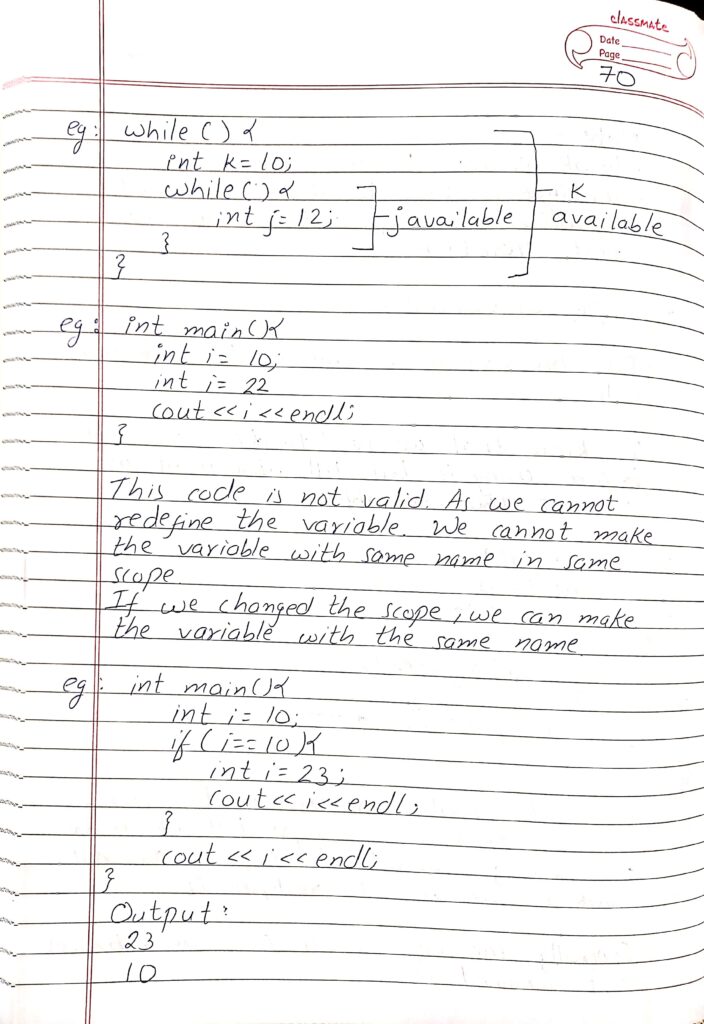 classmate
Date
Page
70
eg: while () {
int k = 10;
while () {
int j = 12;
}
}
j available
k
available
eg: int main() {
int i = 10;
int i = 22
cout << i << endl;
}
This code is not valid. As we cannot
redefine the variable. We cannot make
the variable with same name in same
scope
If we changed the scope, we can make
the variable with the same name
eg: int main() {
int i = 10;
if (i == 10) {
int i = 23;
cout << i << endl;
}
cout << i << endl;
}
Output:
23
10